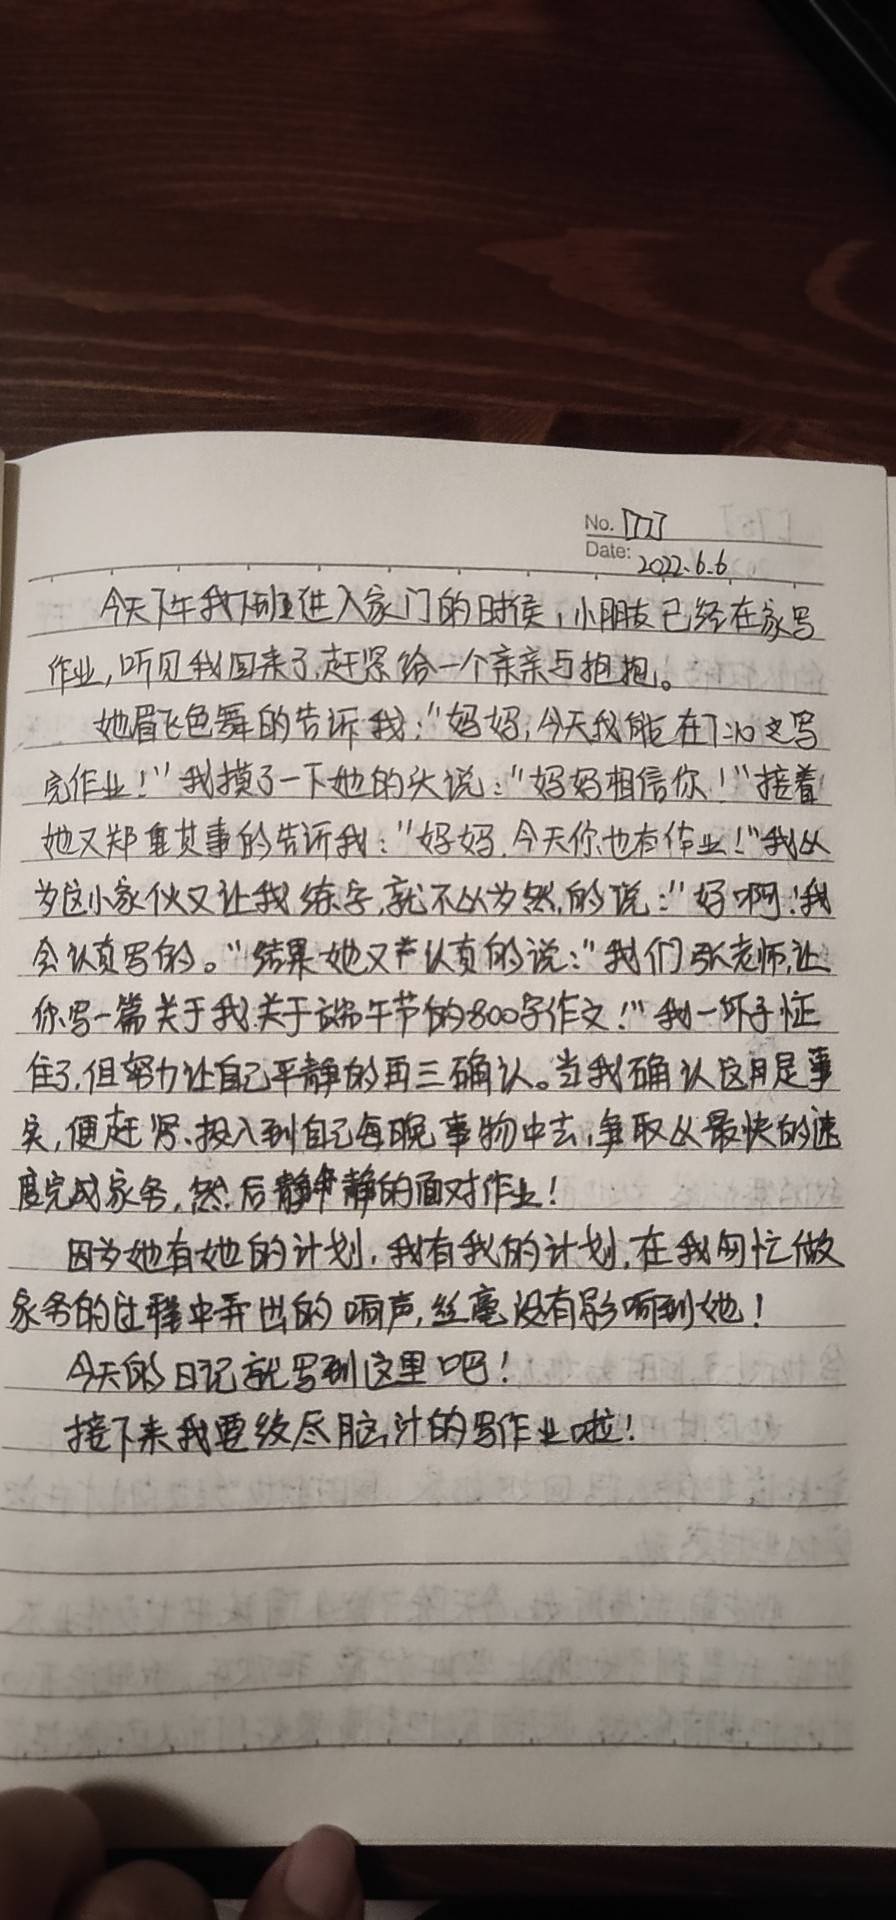 No.
Date: 2022.6.6
今天下午我下班进入家门的时候，小朋友已经在家写
作业，听见我回来了，赶紧给一个亲亲与抱抱。
她眉飞色舞的告诉我："妈妈，今天我能在7:10之写
完作业！"我摸了一下她的头说："妈妈相信你！"接着
她又郑重其事的告诉我："妈妈，今天你也有作业！"我以
为这小家伙又让我练字，就不以为然的说："好啊！我
会认真写的。"结果她又声认真的说："我们张老师，让
你写一篇关于我关于端午节的800字作文！"我一下子怔
住了，但努力让自己平静的再三确认。当我确认这是事
实，便赶紧、投入到自己每晚事物中去，争取以最快的速
度完成家务，然后静静的面对作业！
因为她有她的计划，我有我的计划，在我匆忙做
家务的过程中弄出的响声，丝毫没有影响到她！
今天的日记就写到这里吧！
接下来我要绞尽脑汁的写作业啦！